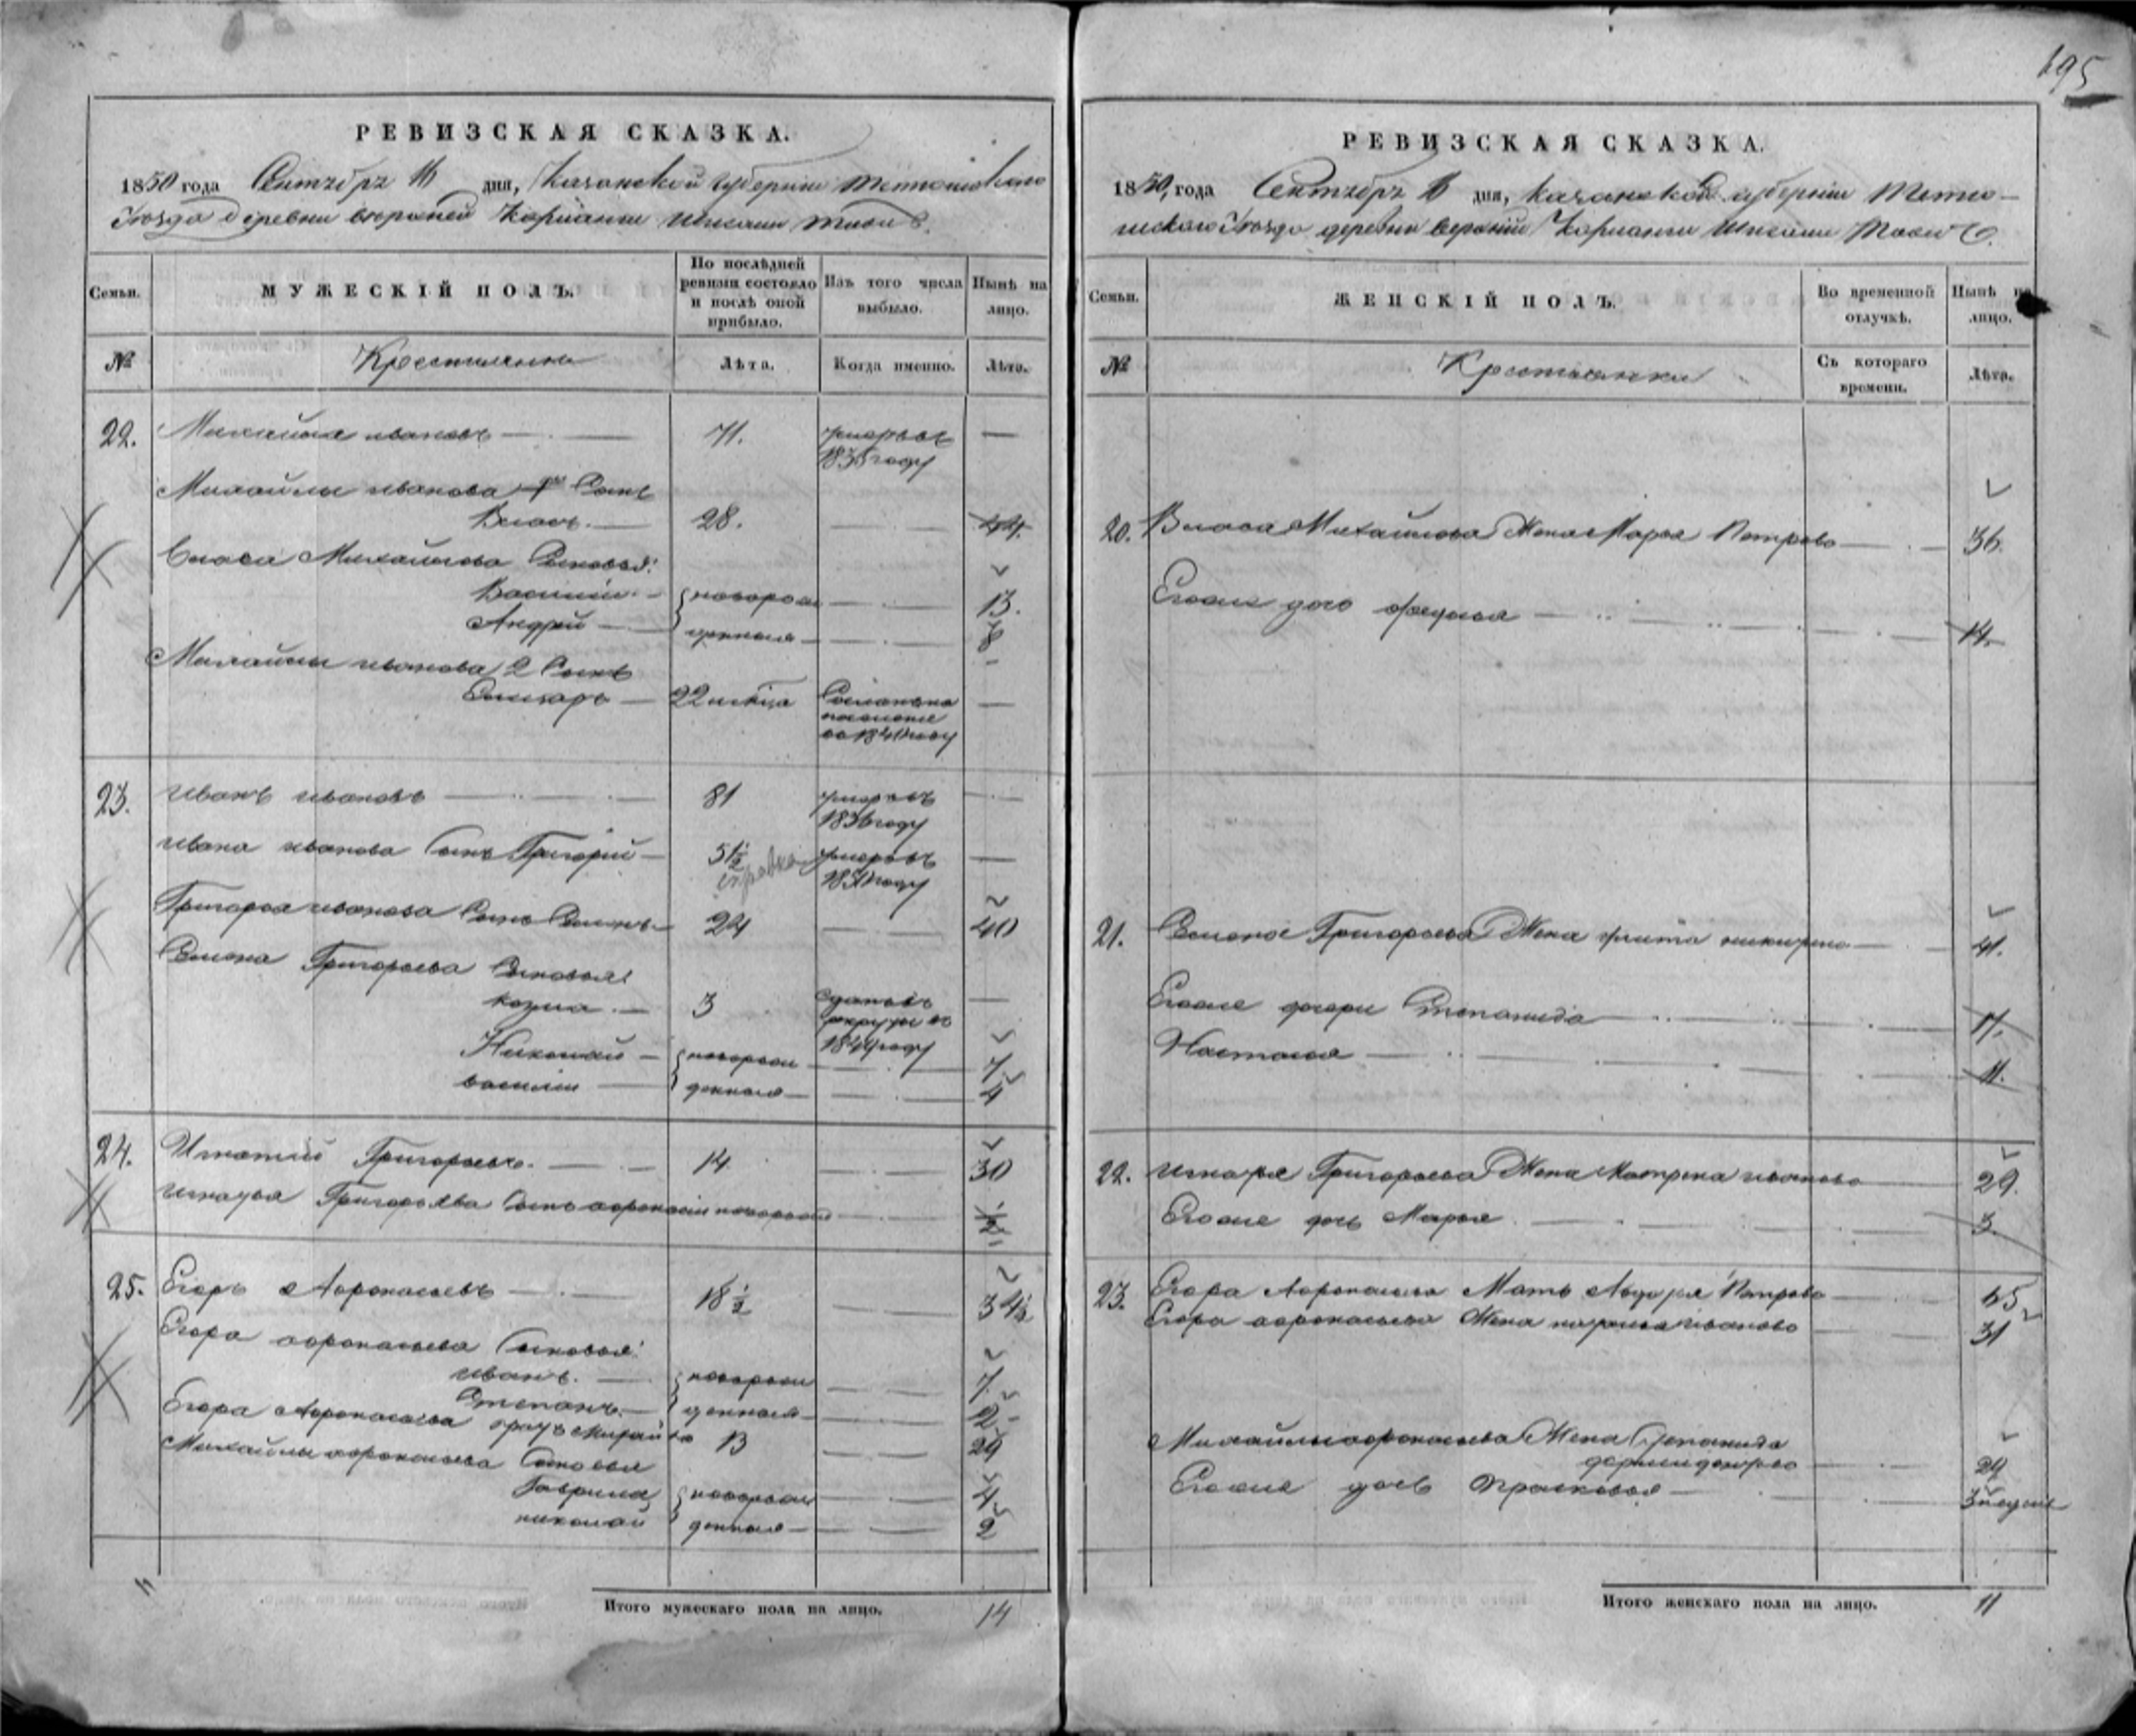 195
РЕВИЗСКАЯ СКАЗКА.
1850 года Сентября 16 дня, Казанской губернии Тетюшскаго
Уезда деревни верхней
Семьи.
МУЖЕСКІЙ ПОЛЪ.
По послѣдней ревизіи состояло и послѣ оной прибыло.
Изъ того числа выбыло.
Нынѣ на лицо.
№
Крестьяне
Лѣта.
Когда именно.
Лѣта.
22. Михайла ивановъ 71. умеръ въ —
1835 году
Михайлы иванова 1й Сынъ
Власъ. 28. 44.
Власа Михайлова Сыновья:
Василий новорож 13.
Андрей денныя 8
Михайлы иванова 2 Сынъ
22 Сосланъ на —
поселение
во 1841 году
23. иванъ ивановъ 81 умеръ въ —
1836 году
ивана иванова Сынъ Григорий 51½ умеръ въ —
справка
Григорья иванова Сынъ Семенъ 24 40
Семена Григорьева Сыновья:
козма 3 Сданъ въ —
рекруты въ
1844 году
Николай новорож 7
василии денныя 4
24. Игнатий Григорьевъ. 14 30
Игнатья Григорьева Сынъ афонасии новорож ½
25. Егоръ Афонасьевъ 18½ 34½
Егора афонасьева Сыновья:
иванъ. новорож 7
Степанъ денныя 2
Егора Афонасьева братъ Михайла 13 29
Михайлы афонасьева Сыновья
Гаврила новорож 4
николай денныя 2
Итого мужескаго пола на лицо. 14
РЕВИЗСКАЯ СКАЗКА.
1850, года Сентября 16 дня, казанской губернии Тетю-
шскаго Уезда деревни верхний
Семьи.
ЖЕНСКІЙ ПОЛЪ.
Во временной отлучкѣ.
Нынѣ на лицо.
№
Крестьянки
Съ котораго времени.
Лѣта.
20. Власа Михайлова Жена Марья Петрова 36.
Егоже дочь 14.
21. Семена Григорьева Жена 41.
Егоже дочери Степанида 17.
Настасья 11.
22. Игнатья Григорьева Жена Матрена иванова 29.
Егоже дочь Марья 3
23. Егора Афонасьева Мать Авдотья Петрова
Егора афонасьева Жена иванова 31
Михайлы афонасьева Жена Степанида
29
Егоже дочь Прасковья 3 недели
Итого женскаго пола на лицо. 11